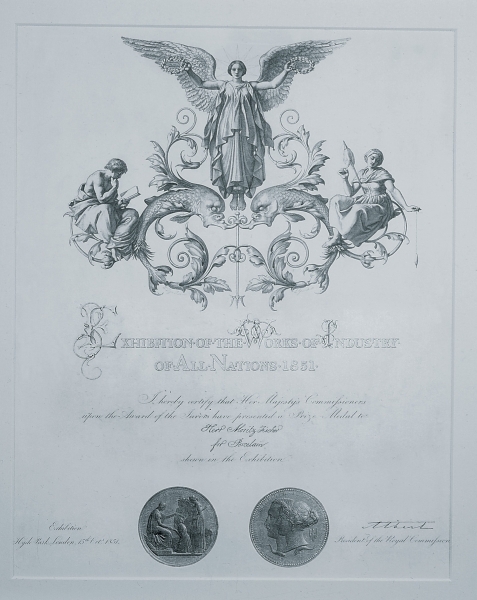 EXHIBITION · OF · THE · WORKS · OF · INDUSTRY
OF · ALL · NATIONS · 1851 ·
I hereby certify that Her Majesty's Commissioners
upon the Award of the Jurors have presented a Prize Medal to
Herr Moritz
for
shewn in the Exhibition
Exhibition
Hyde Park, London, 15th Octr. 1851.
Albert
President of the Royal Commission